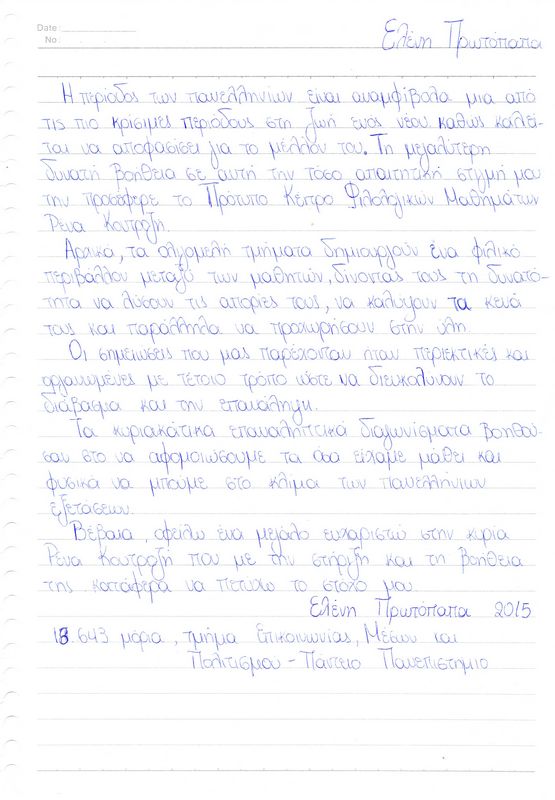 Date:
No:
Ελένη Πρωτόπαπα
Η περίοδος των πανελληνίων είναι αναμφίβολα μια από
τις πιο κρίσιμες περιόδους στη ζωή ενός νέου καθώς καλεί-
ται να αποφασίσει για το μέλλον του. Τη μεγαλύτερη
δυνατή βοήθεια σε αυτή την τόσο απαιτητική στιγμή μου
την προσέφερε το Πρότυπο Κέντρο Φιλολογικών Μαθημάτων
Ρένα Κουτροξή.
Αρχικα, τα ολιγομελή τμήματα δημιουργούν ένα φιλικό
περιβάλλον μεταξύ των μαθητών, δίνοντας τους τη δυνατό-
τητα να λύσουν τις απορίες τους, να καλύψουν τα κενά
τους και παράλληλα να προχωρήσουν στην ύλη
Οι σημειώσεις που μας παρέχονταν ήταν περιεκτικές και
οργανωμένες με τέτοιο τρόπο ώστε να διευκολύνουν το
διάβασμα και την επανάληψη.
Τα κυριακάτικα επαναληπτικά διαγωνίσματα βοηθού-
σαν στο να αφομοιώσουμε τα όσα είχαμε μάθει και
φυσικά να μπούμε στο κλίμα των πανελλήνιων
εξετάσεων.
Βέβαια, οφείλω ένα μεγάλο ευχαριστώ στην κυρία
Ρένα Κουτροξή που με την στήριξη και τη βοήθεια
της κατάφερα να πετύχω το στόχο μου.
Ελένη Πρωτόπαπα 2015
18.643 μόρια, τμήμα Επικοινωνίας, Μέσων και
Πολιτισμού - Πάντειο Πανεπιστήμιο